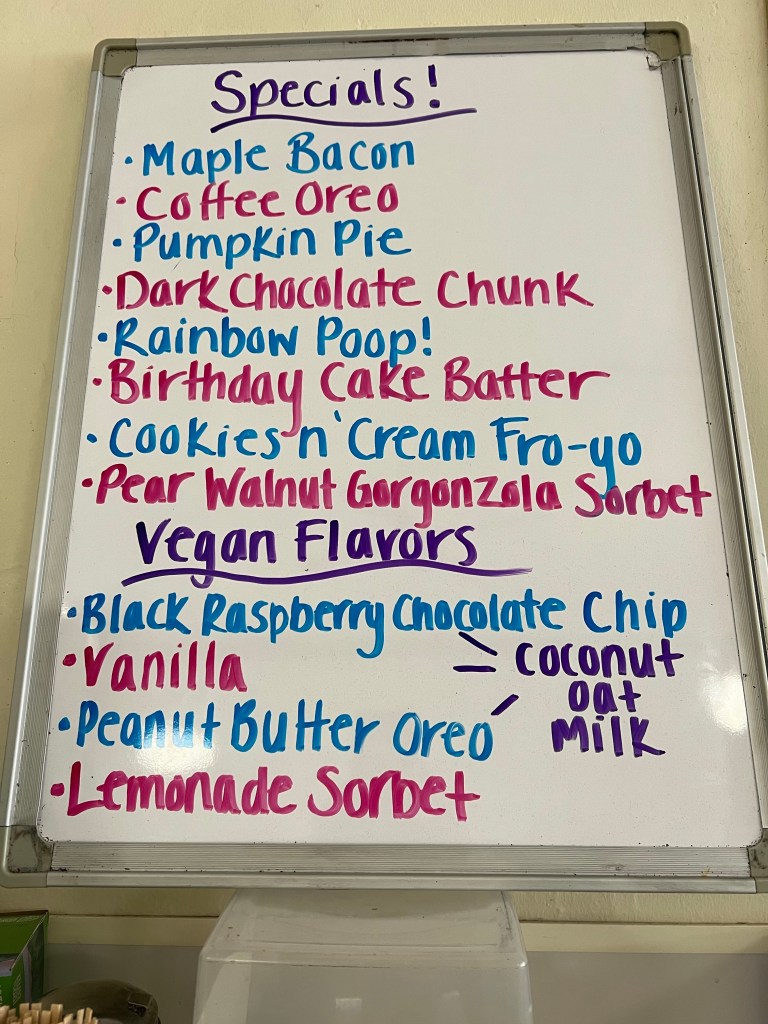 Specials!
·Maple Bacon
·Coffee Oreo
·Pumpkin Pie
·Dark Chocolate Chunk
·Rainbow Poop!
·Birthday Cake Batter
·Cookies n' Cream Fro-yo
·Pear Walnut Gorgonzola Sorbet
Vegan Flavors
·Black Raspberry Chocolate Chip
·Vanilla
coconut
oat
milk
·Peanut Butter Oreo
·Lemonade Sorbet